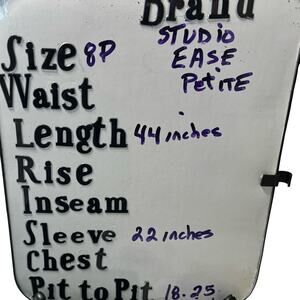 Brand
Size 8P STUDIO
EASE
Waist PETITE
Length 44 inches
Rise
Inseam
Sleeve 22 inches
Chest
Pit to Pit 18.25